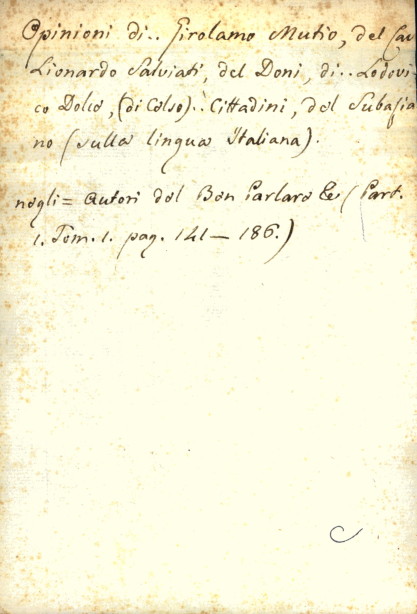 Opinioni di.. Girolamo Mutio, del Cav
Lionardo Salviati, del Doni, di.. Lodovi
co Dolce, (di Celso).. Cittadini, del Subasia
no (sulla lingua Italiana).
negli = Autori del Ben Parlare &c (Part.
1. Tom. 1. pag. 141 — 186.)